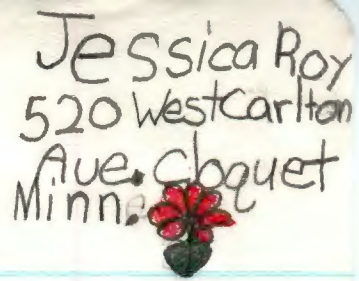 Jessica Roy
520 West Carlton
Ave. Cloquet
Minn.